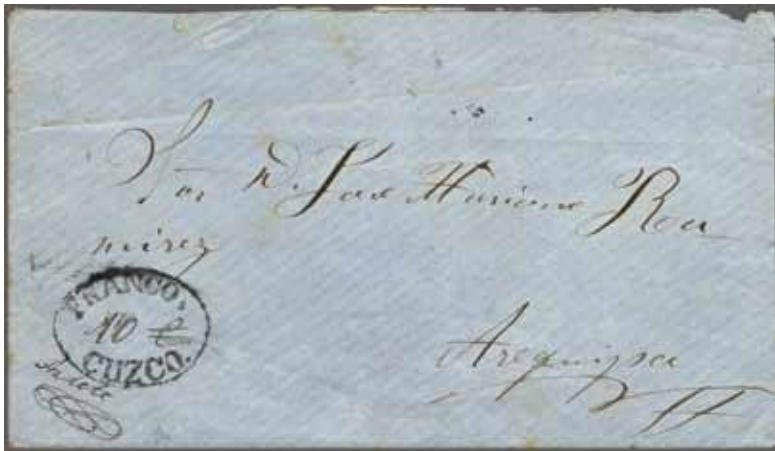 Sor D. José Mariano Ra
mirez
FRANCO.
10
CUZCO.
Arequipa